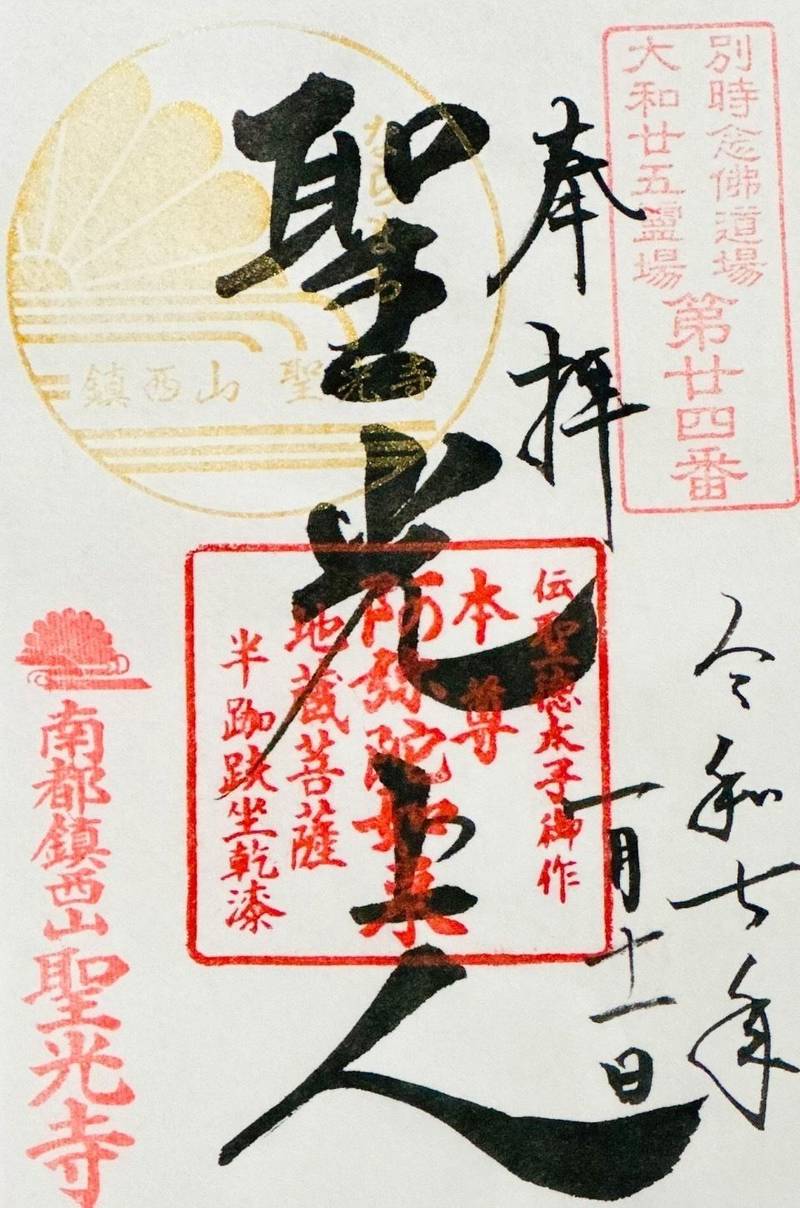 別時念佛道場
大和廿五霊場
第廿四番
奉拝
令和七年
一月十一日
聖光上人
ならまち
鎮西山 聖光寺
伝聖徳太子御作
本尊
阿弥陀如来
地蔵菩薩
半跏趺坐乾漆
南都鎮西山
聖光寺